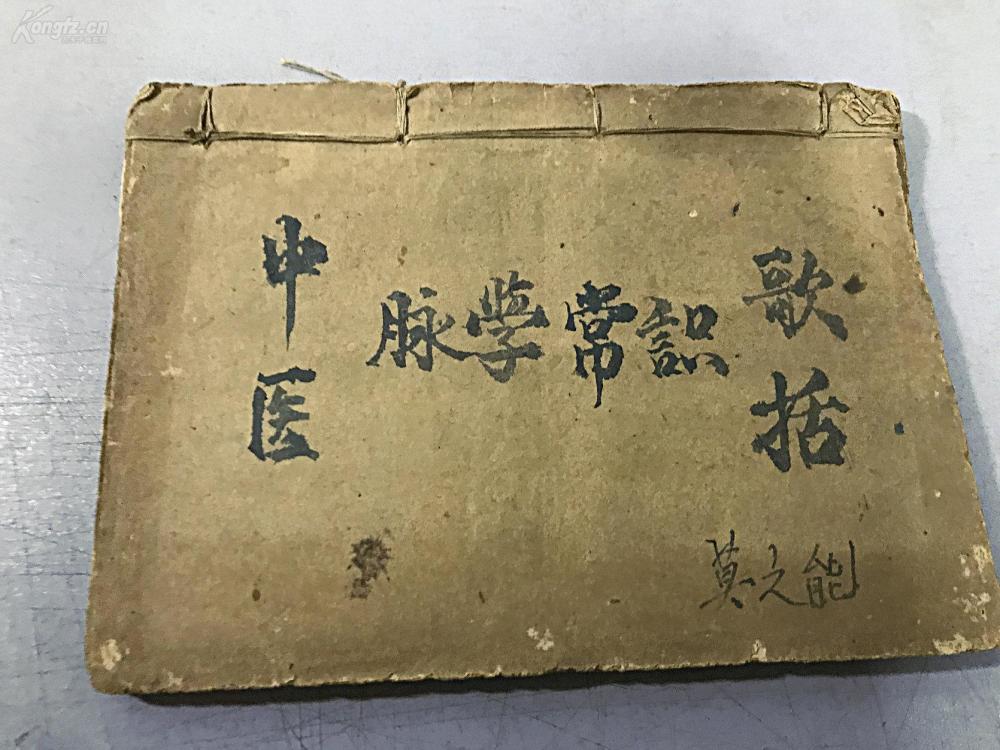 Kongfz.cn
中医
脉学常识
歌括
莫之能